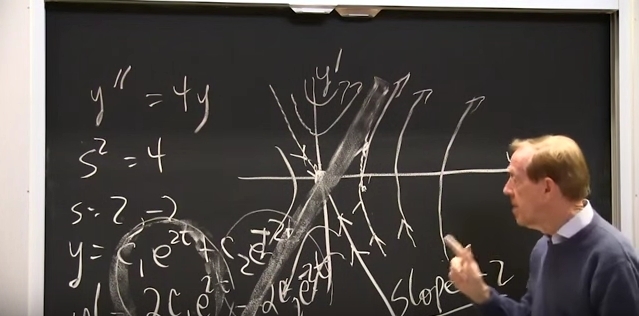 y'' = 4y
y'
s² = 4
s = 2, -2
y = c₁e²ᵗ + c₂e⁻²ᵗ
y' = 2c₁e²ᵗ - 2c₂e⁻²ᵗ
Slope -2